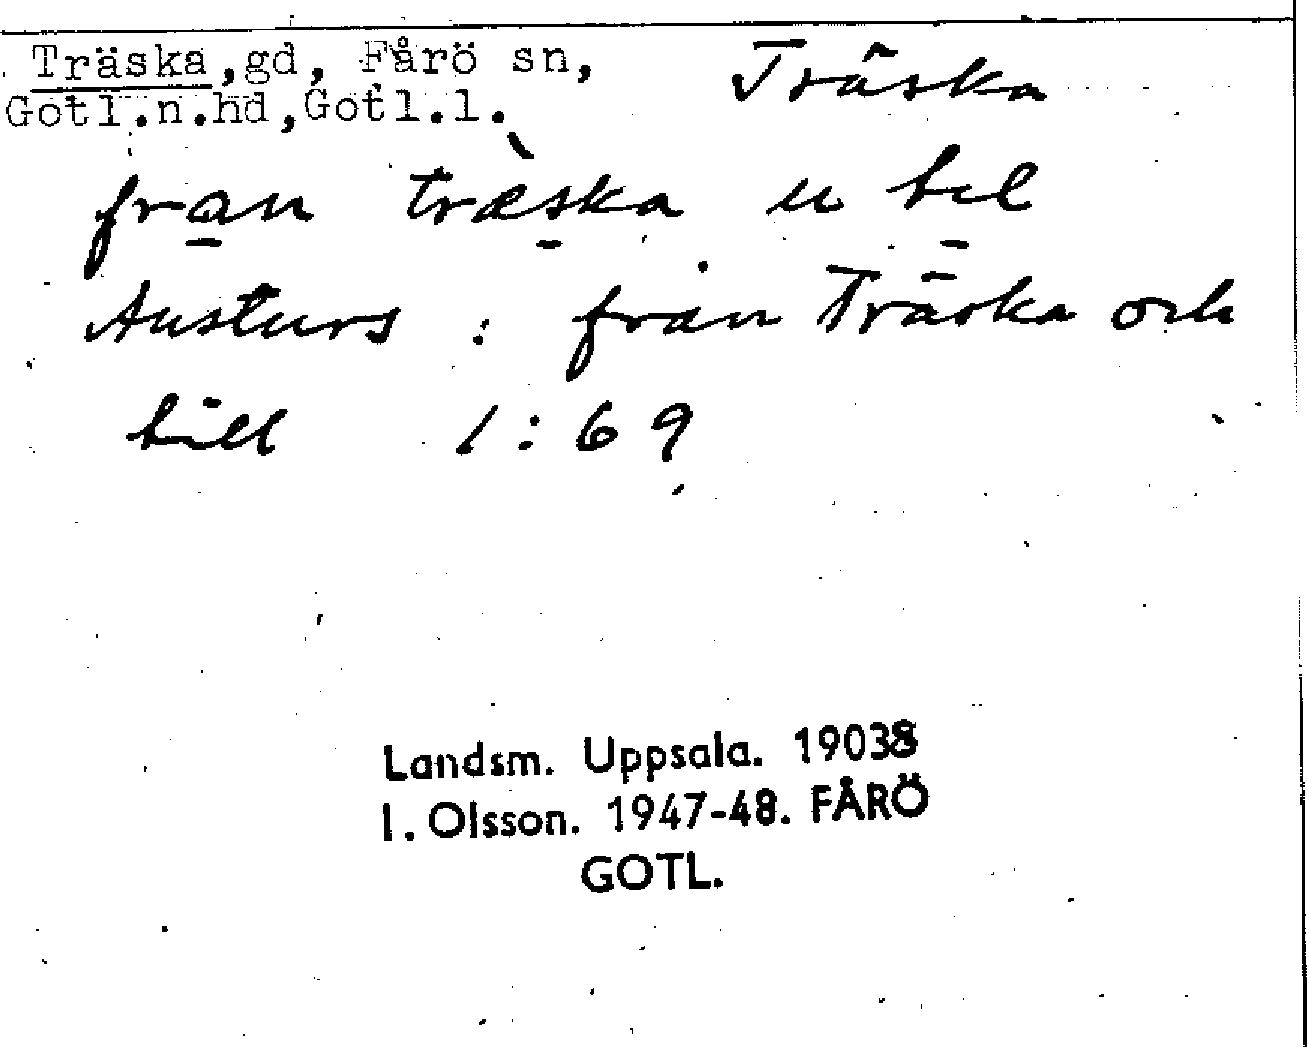 Träska,gd, Fårö sn,
Gotl.n.hd,Gotl.l.
Träska
fran træska u tel
Austurs : från Träska och
till 1:69
Landsm. Uppsala. 19038
I. Olsson. 1947-48. FÅRÖ
GOTL.